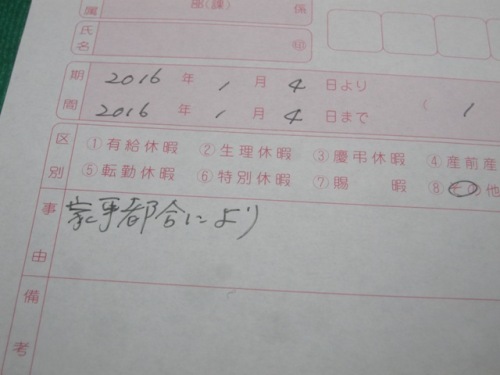 属 部(課) 係
氏名 印
期間 2016 年 1 月 4 日より
2016 年 1 月 4 日まで ( 1
区別 ①有給休暇 ②生理休暇 ③慶弔休暇 ④産前産
⑤転勤休暇 ⑥特別休暇 ⑦賜 暇 ⑧その他
事由 家事都合により
備考